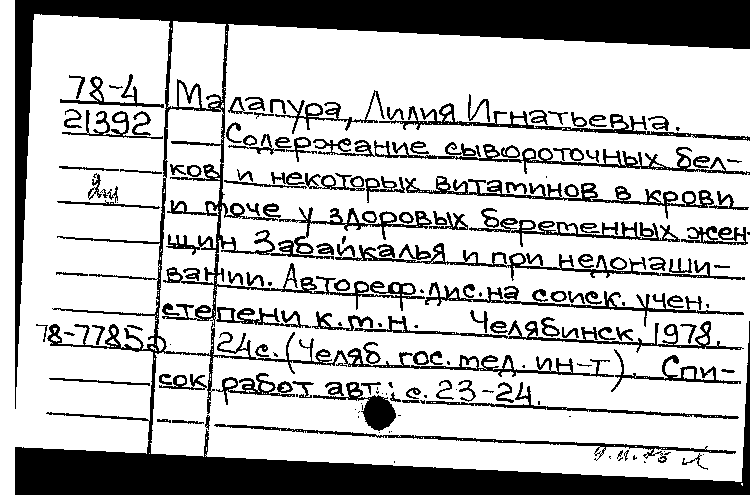 78-4 Малапура, Лидия Игнатьевна.
21392 Содержание сывороточных бел-
ков и некоторых витаминов в крови
и моче у здоровых беременных жен-
щин Забайкалья и при недонаши-
вании. Автореф. дис. на соиск. учен.
степени к.м.н. Челябинск, 1978.
78-7785а 24с. (Челяб. гос. мед. ин-т). Спи-
сок работ авт.: с. 23-24.